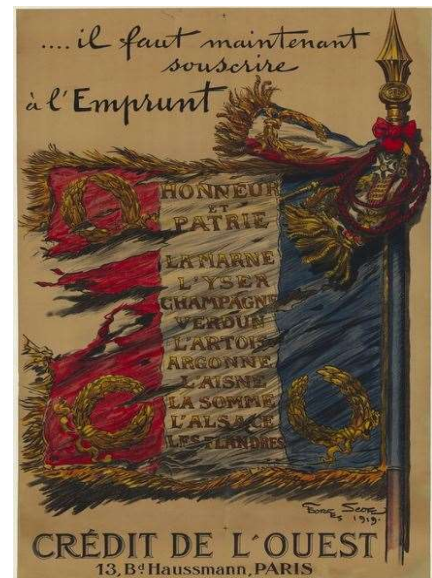 .... il faut maintenant
souscrire
à l'Emprunt
HONNEUR
ET
PATRIE
LA MARNE
L'YSER
CHAMPAGNE
VERDUN
L'ARTOIS
ARGONNE
L'AISNE
LA SOMME
L'ALSACE
LES FLANDRES
1919.
CRÉDIT DE L'OUEST
13, Bd Haussmann, PARIS